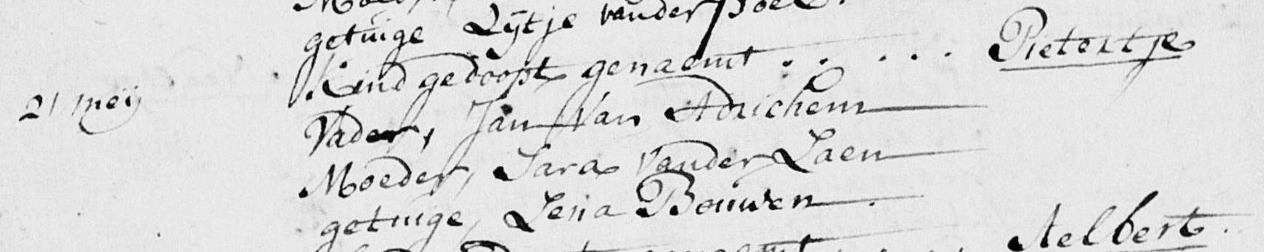 getuige Lijtje vander Poel.
21 meij Kind gedoopt genaemt . . . . . Pietertje
Vader, Jan Van Adrichem
Moeder, Sara Vander Laen
getuige, Lena Bouwen
Aelbert.